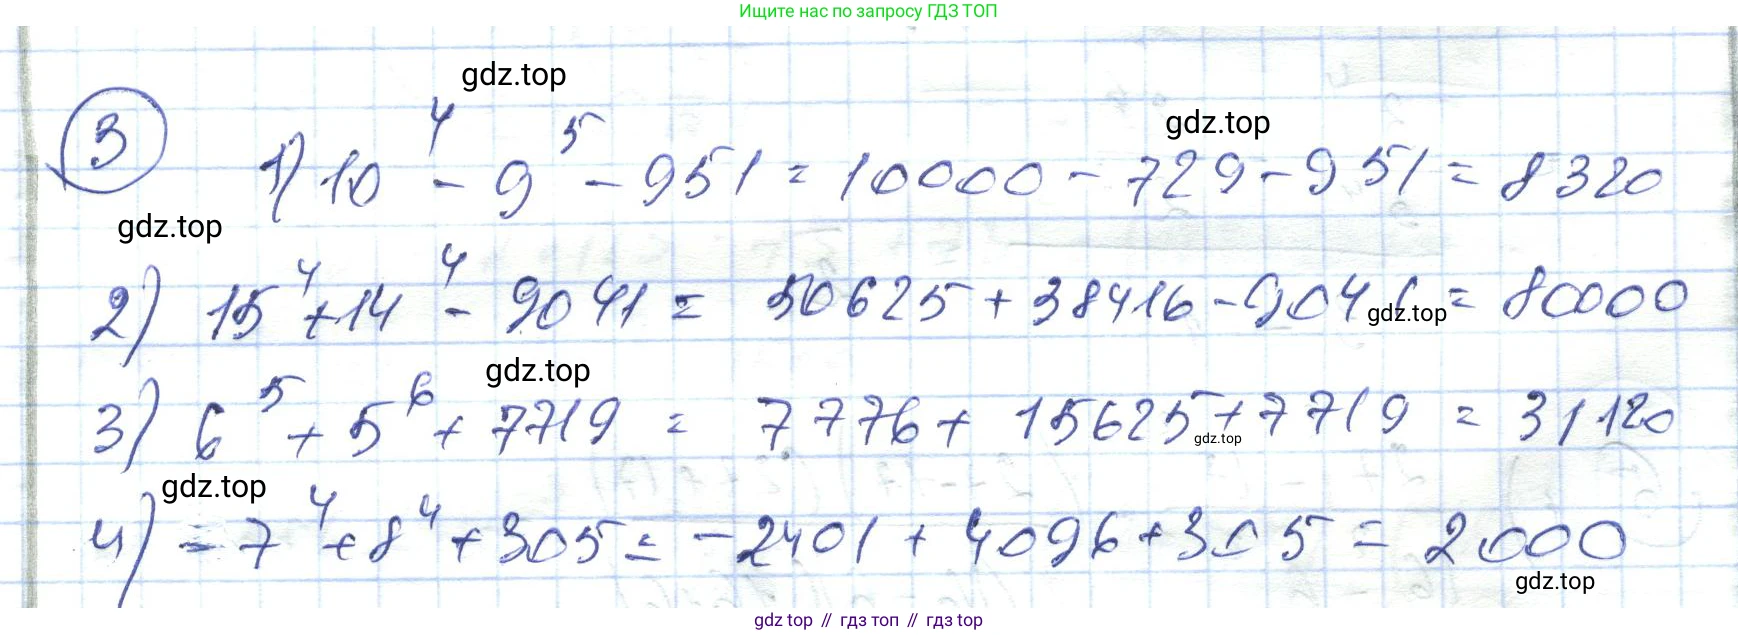 Ищите нас по запросу ГДЗ ТОП
gdz.top
3
1) 10⁴ - 9⁵ - 951 = 10000 - 729 - 951 = 8320
gdz.top
gdz.top
2) 15⁴ + 14⁴ - 9041 = 50625 + 38416 - 9041 = 80000
gdz.top
gdz.top
3) 6⁵ + 5⁶ + 7719 = 7776 + 15625 + 7719 = 31120
gdz.top
gdz.top
4) -7⁴ + 8⁴ + 305 = -2401 + 4096 + 305 = 2000
gdz.top
gdz top // гдз топ // гдз top